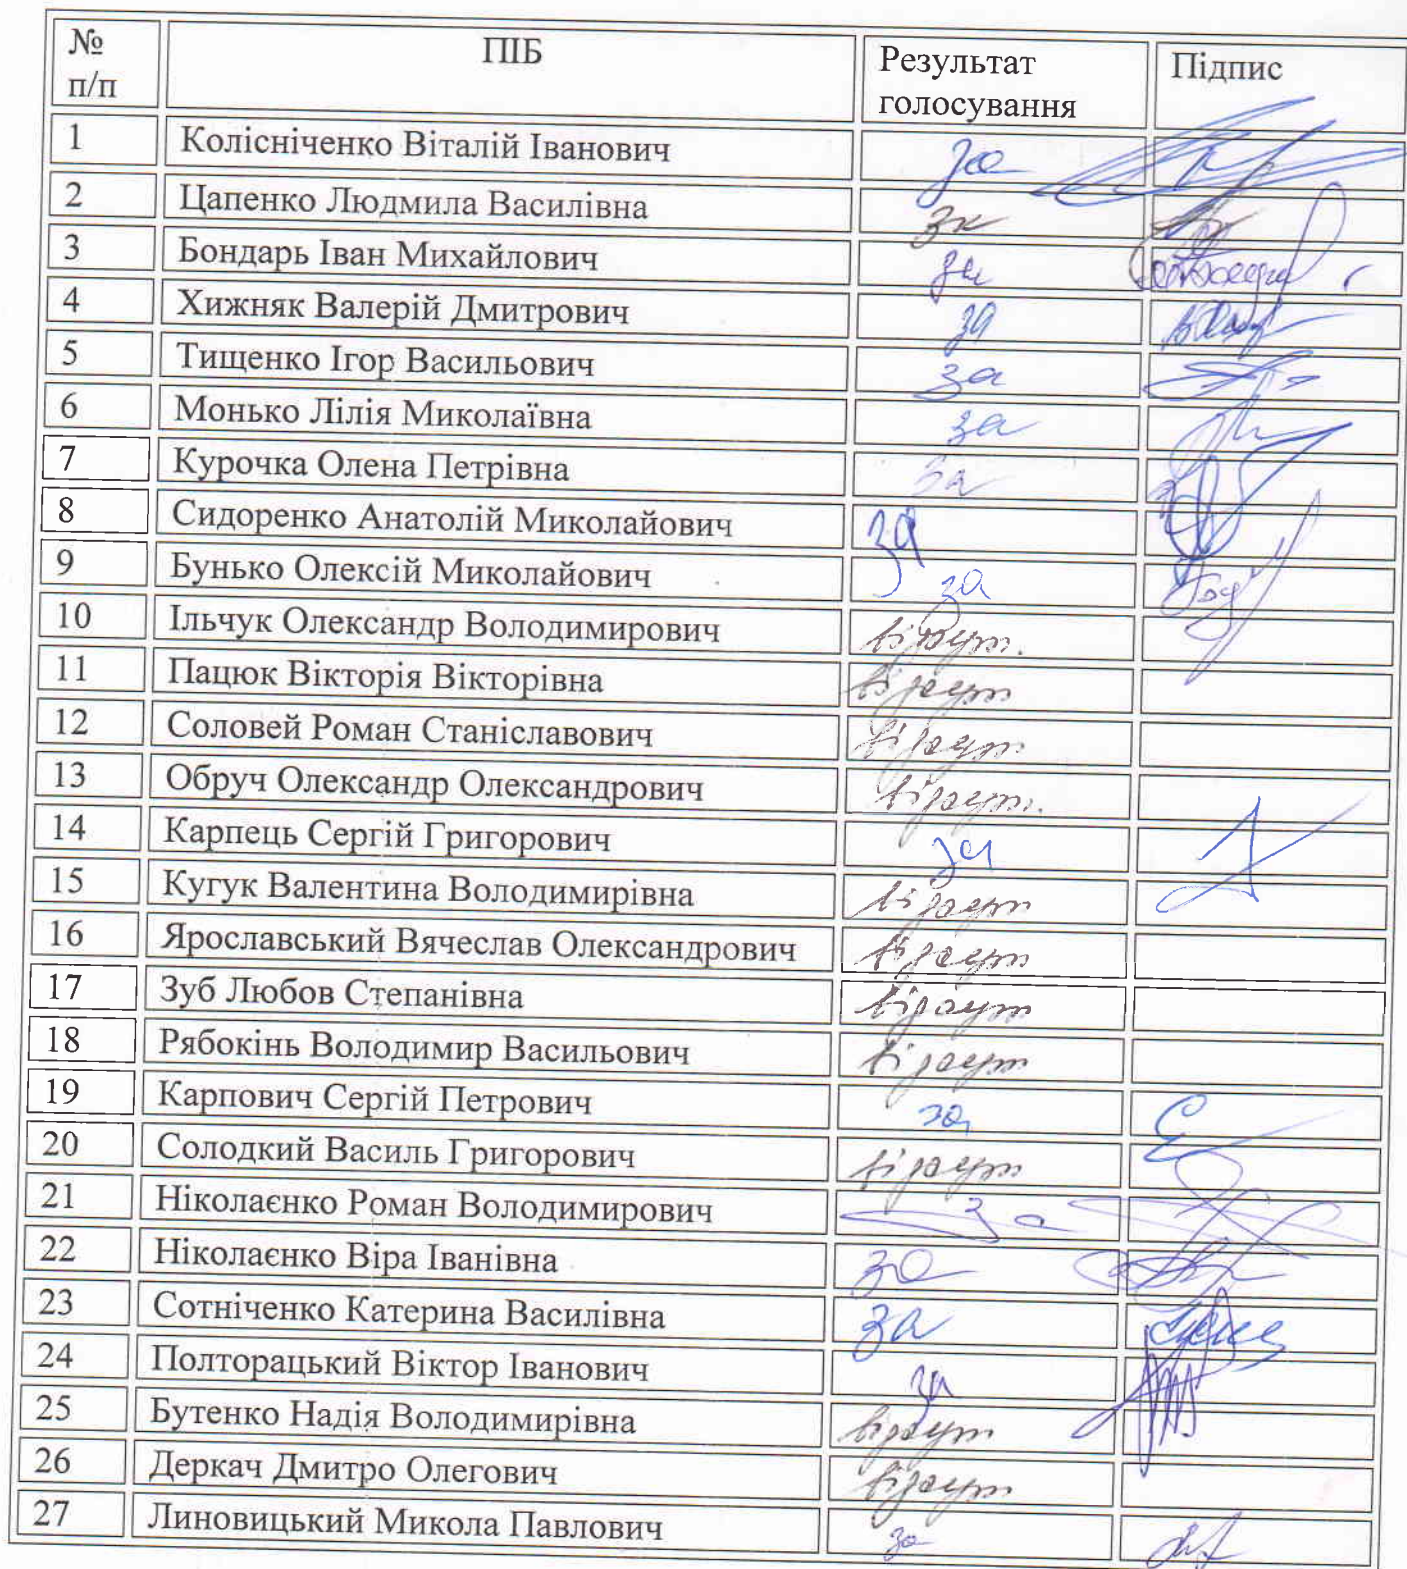 № п/п ПІБ Результат голосування Підпис
1 Колісніченко Віталій Іванович за
2 Цапенко Людмила Василівна за
3 Бондарь Іван Михайлович за
4 Хижняк Валерій Дмитрович за
5 Тищенко Ігор Васильович за
6 Монько Лілія Миколаївна за
7 Курочка Олена Петрівна за
8 Сидоренко Анатолій Миколайович за
9 Бунько Олексій Миколайович за
10 Ільчук Олександр Володимирович відсут.
11 Пацюк Вікторія Вікторівна відсут
12 Соловей Роман Станіславович відсут
13 Обруч Олександр Олександрович відсут.
14 Карпець Сергій Григорович за
15 Кугук Валентина Володимирівна відсут
16 Ярославський Вячеслав Олександрович відсут
17 Зуб Любов Степанівна відсут
18 Рябокінь Володимир Васильович відсут
19 Карпович Сергій Петрович за
20 Солодкий Василь Григорович відсут
21 Ніколаєнко Роман Володимирович за
22 Ніколаєнко Віра Іванівна за
23 Сотніченко Катерина Василівна за
24 Полторацький Віктор Іванович за
25 Бутенко Надія Володимирівна відсут
26 Деркач Дмитро Олегович відсут
27 Линовицький Микола Павлович за